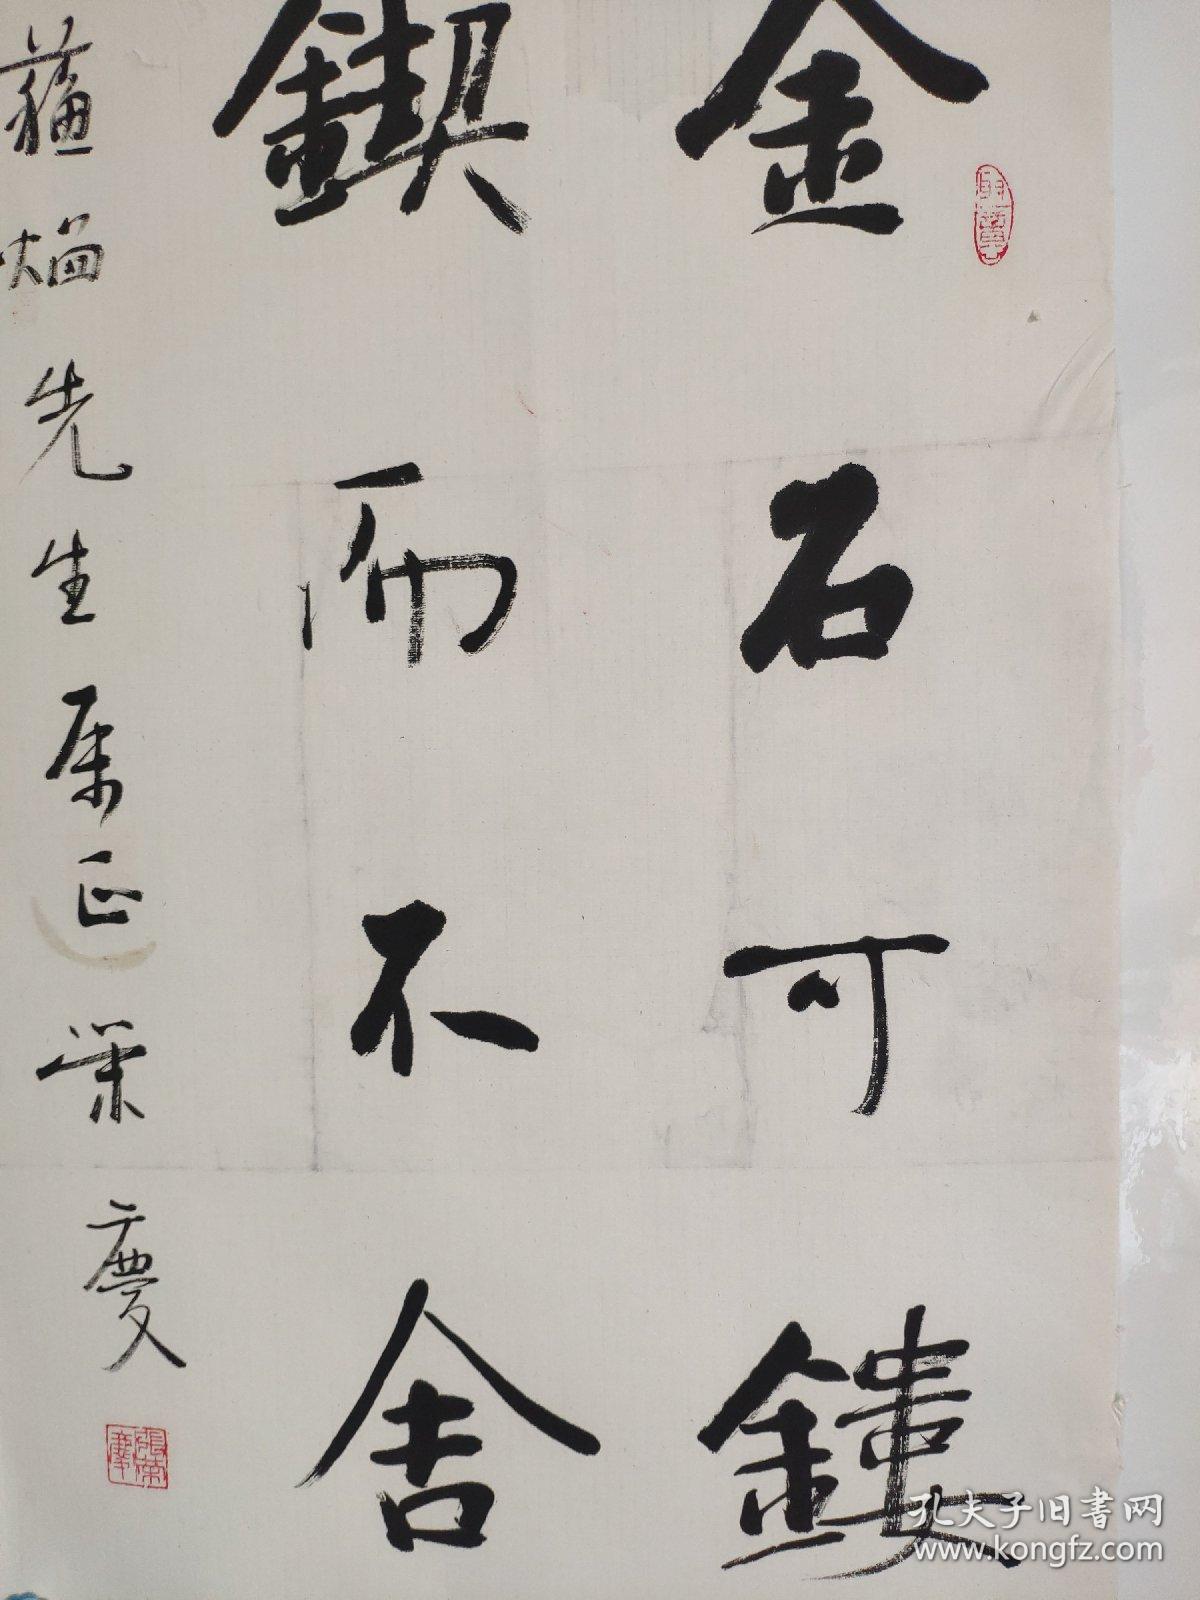 金石可鏤
鍥而不舍
先生属正榮慶
張榮慶
孔夫子旧书网
www.kongfz.com